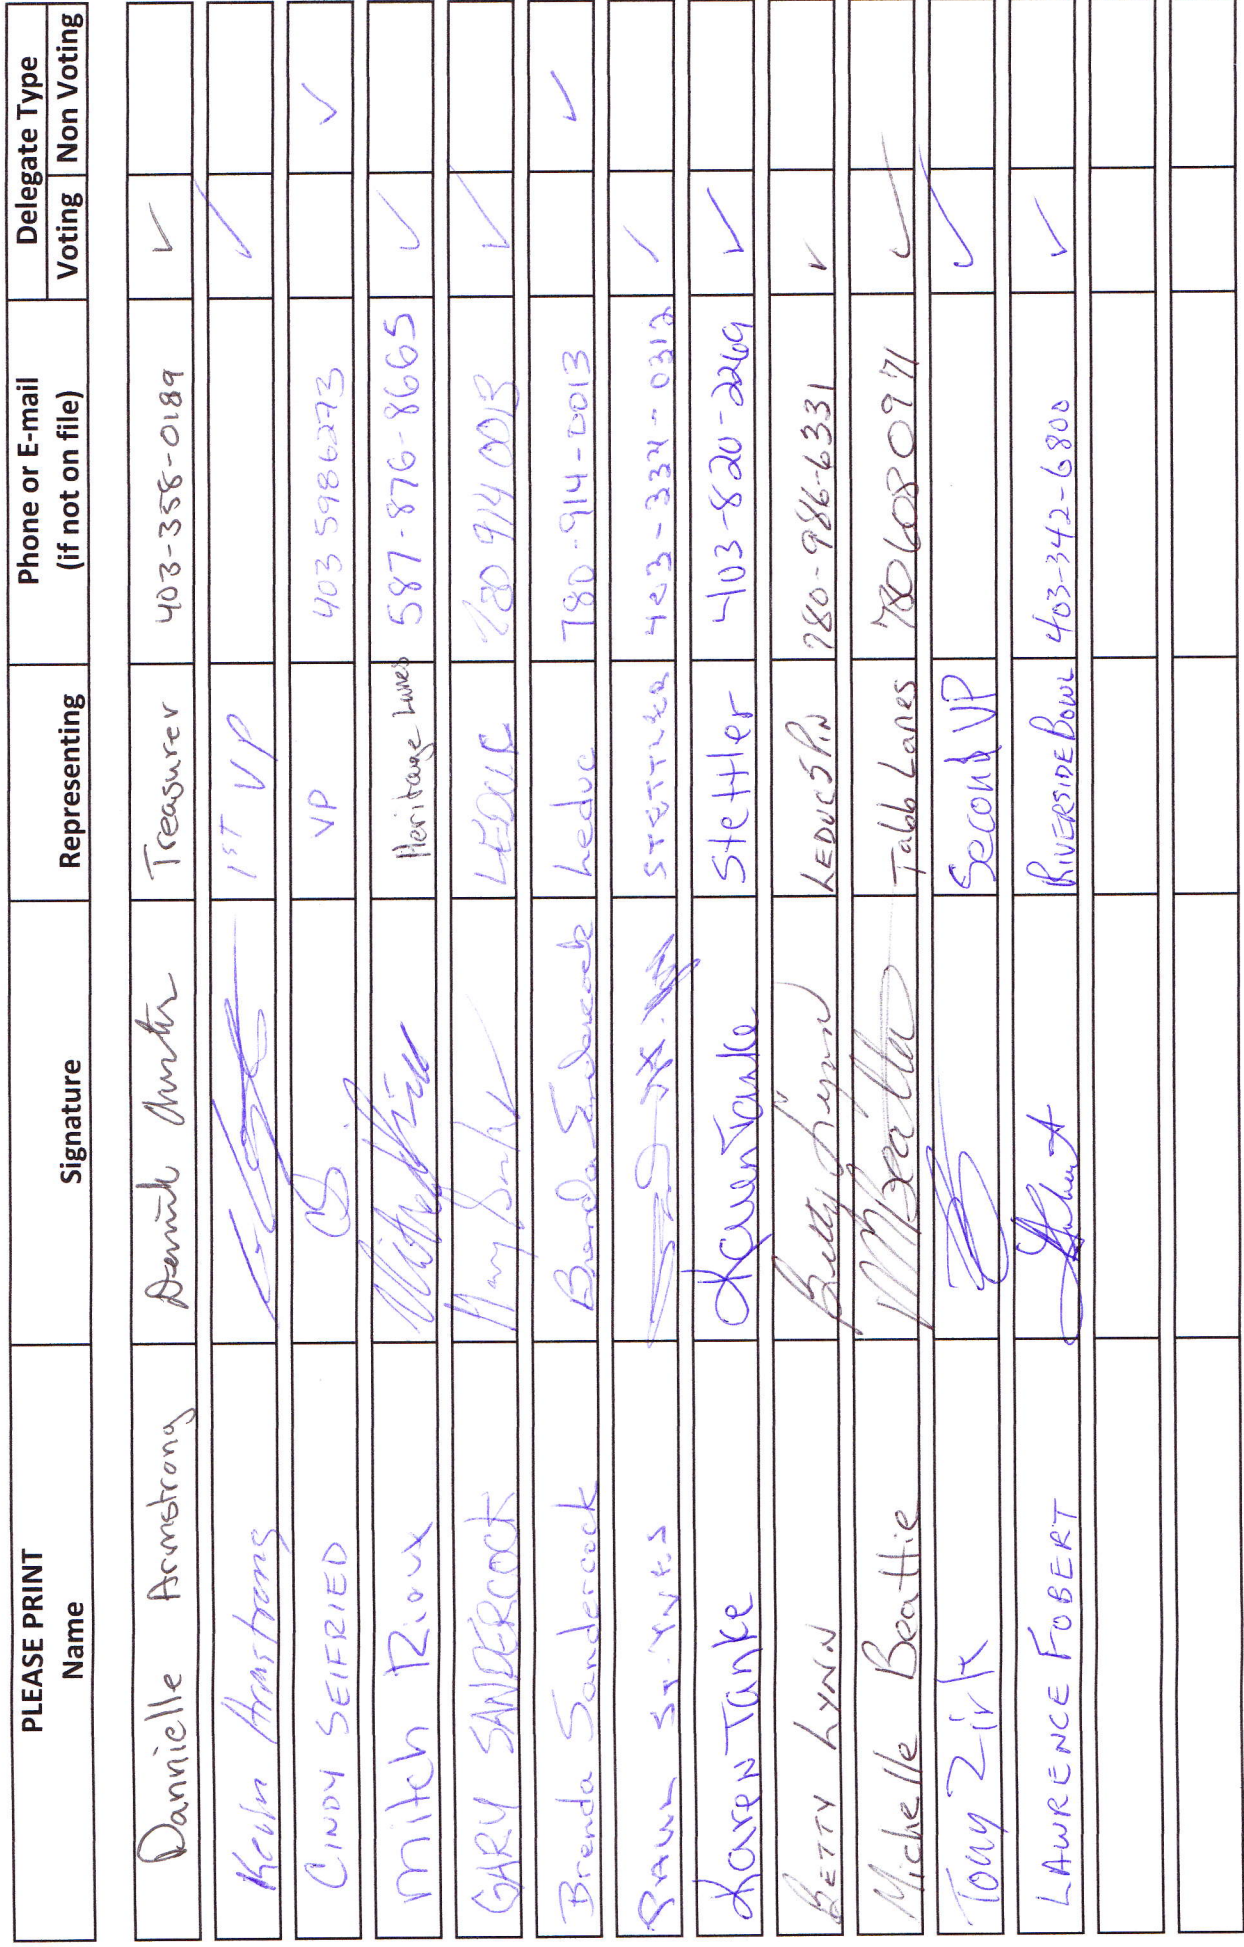 PLEASE PRINT Name Signature Representing Phone or E-mail (if not on file) Delegate Type Voting Non Voting
Dannielle Armstrong Treasurer 403-358-0189 ✓
Kevin Armstrong 1ST VP ✓
CINDY SEIFRIED CS VP 403 5986273 ✓
Mitch Rioux Heritage Lanes 587-876-8665 ✓
GARY SANDERCOCK LEDUC 780 914 0013 ✓
Brenda Sandercock Brenda Sandercock Leduc 780-914-0013 ✓
PAUL ST. YVES STETTLER ✓
Karen Tanke Karen Tanke Stettler 403-820-2269 ✓
BETTY LYNN Betty Lynn LEDUC SPIN 780-986-6331 ✓
Michelle Beattie MBeattie Tabb Lanes 7806080971 ✓
Tony Zirk Second VP ✓
LAWRENCE FOBERT RIVERSIDE BOWL 403-342-6800 ✓